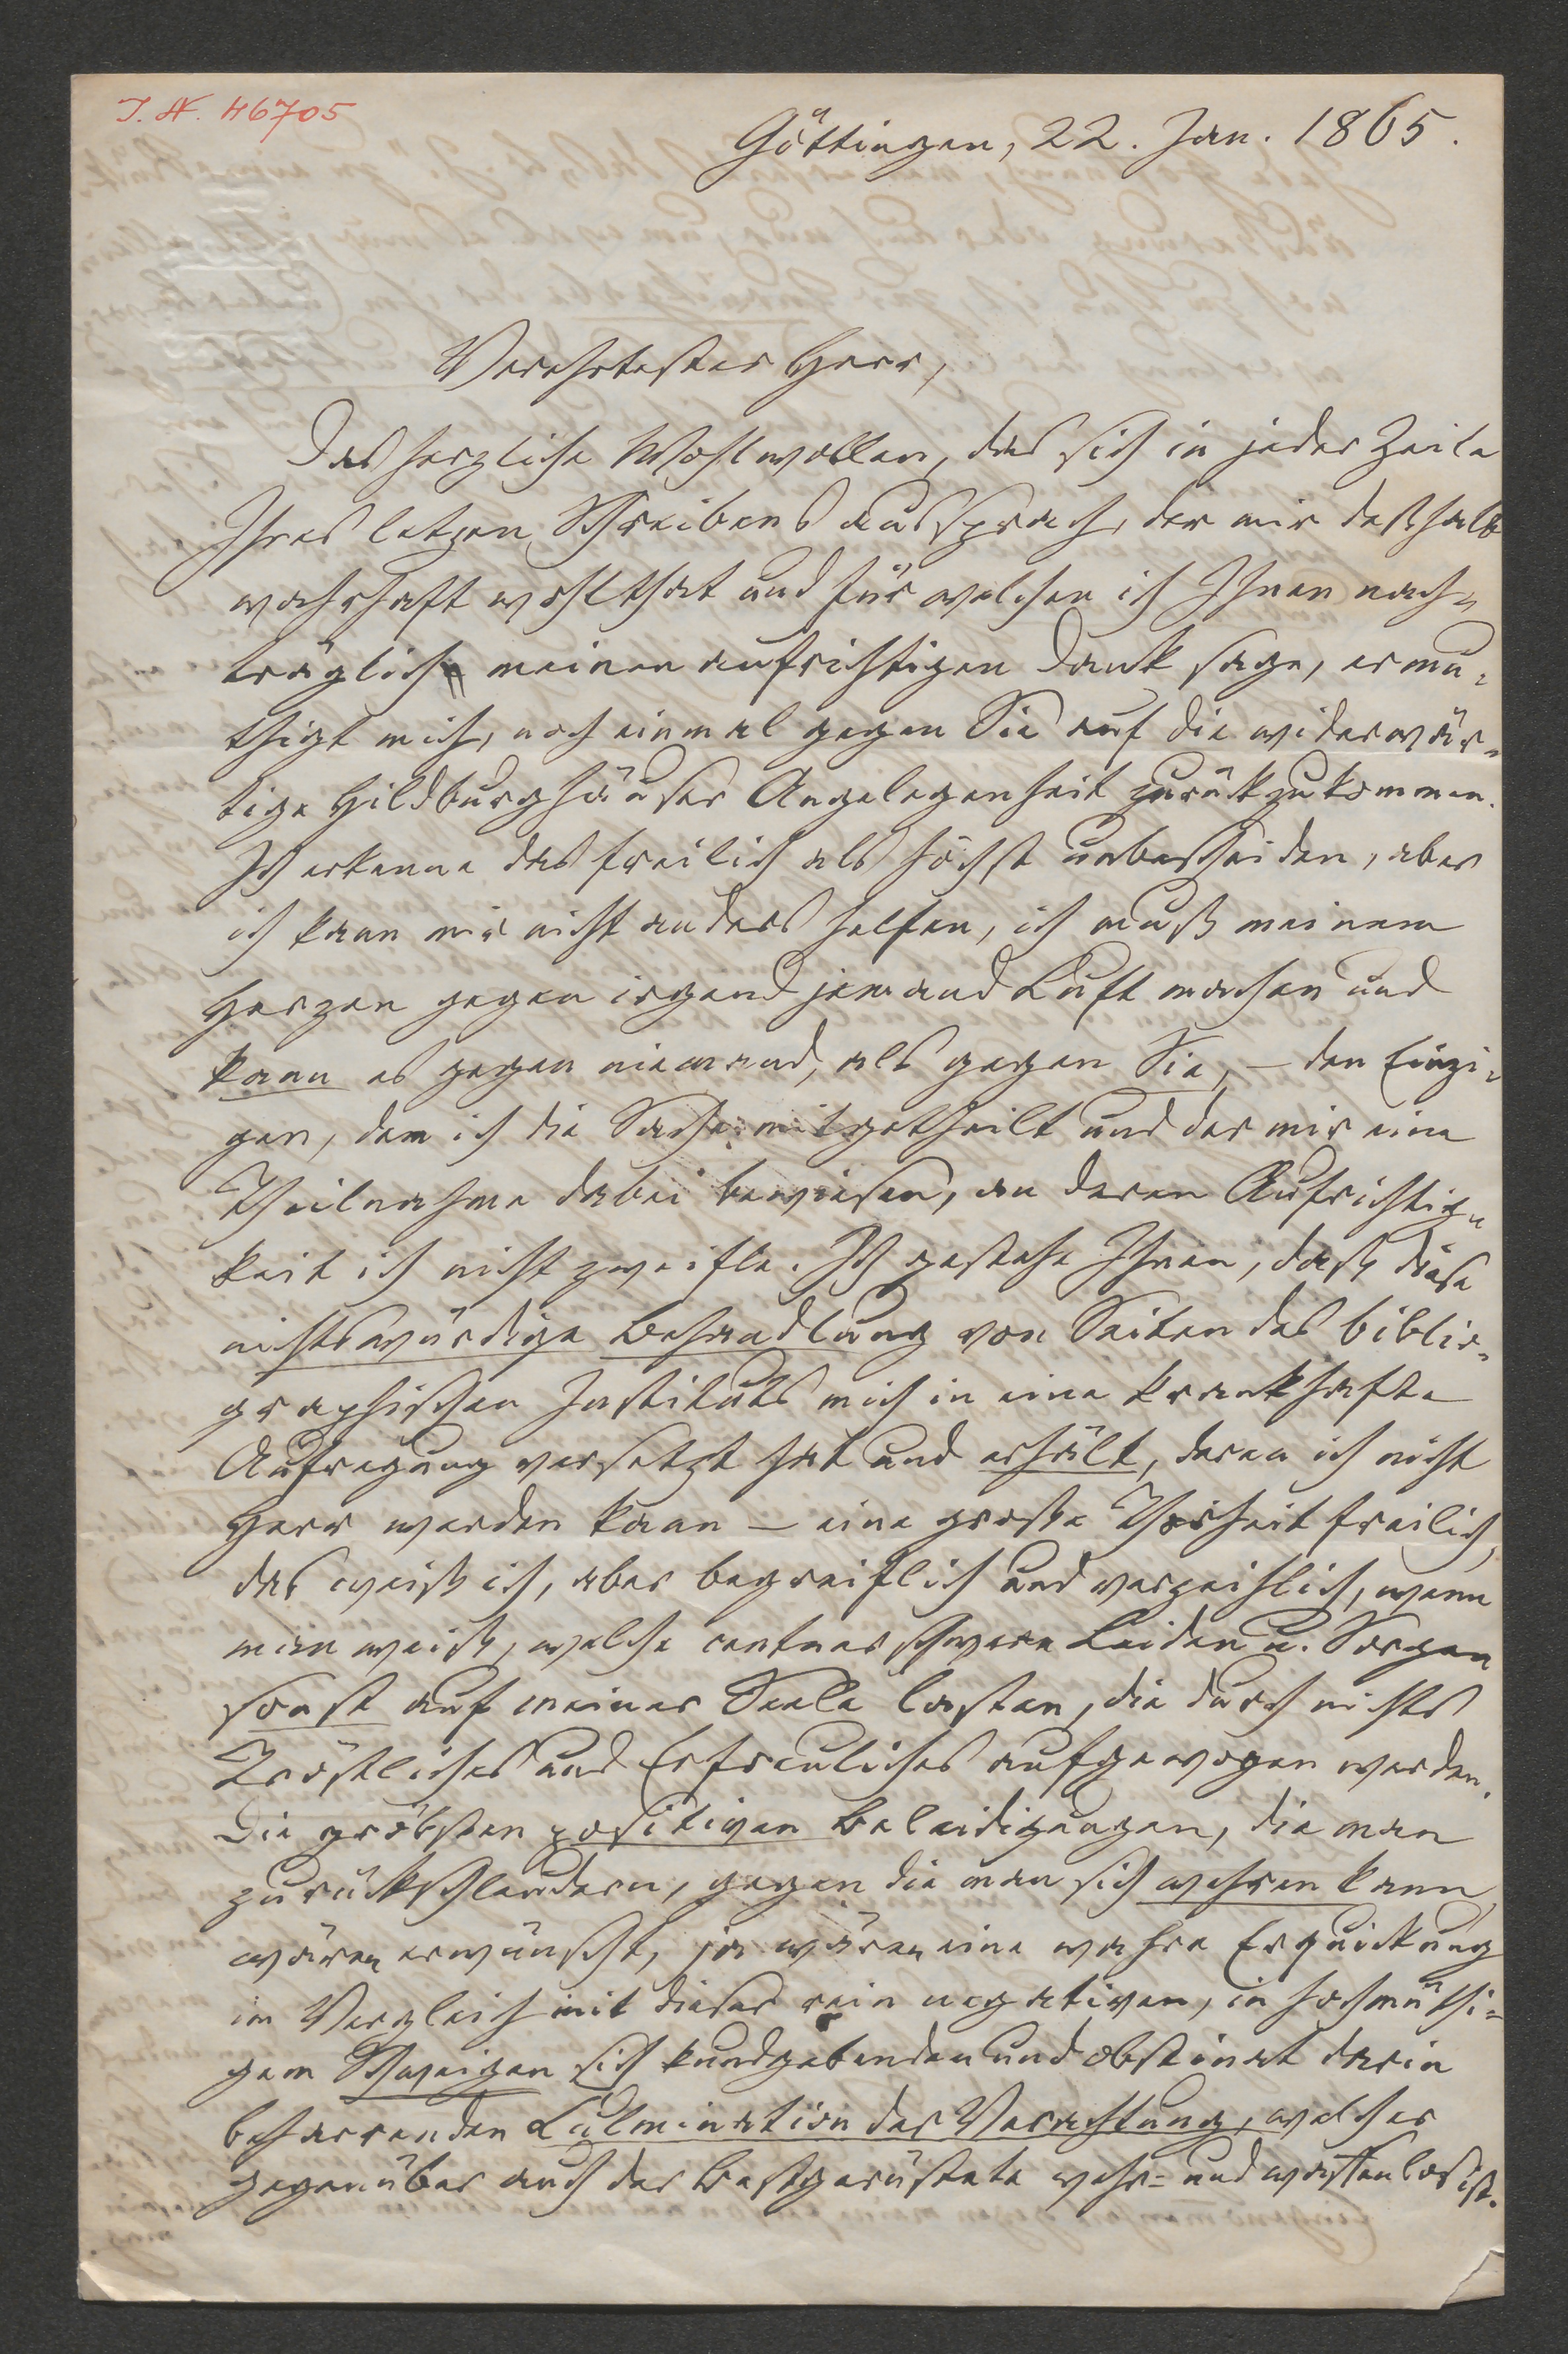 I. N. 46705
Göttingen, 22. Jan. 1865.
Verehrtester Herr,
Das herzliche Wohlwollen, das sich in jeder Zeile
Ihres letzen Schreibens aussprach, der mir deßhalb
wahrhaft wohlthat und für welchen ich Ihnen nach-
träglich meinen aufrichtigen Dank sage, ermu-
thigt mich, noch einmal gegen Sie auf die widerwär-
tige Hildburghäuser Angelegenheit zurückzukommen.
Ich erkenne das freilich als höchst unbescheiden, aber
ich kann mir nicht anders helfen, ich muß meinem
Herzen gegen irgend jemand Luft machen und
kann es gegen niemand, als gegen Sie, – den Einzi-
gen, dem ich die Sache mitgetheilt und der mir eine
Theilnahme dabei bewiesen, an deren Aufrichtig-
keit ich nicht zweifle. Ich gestehe Ihnen, daß diese
nichtswürdige Behandlung von Seiten des biblio-
graphischen Instituts mich in eine krankhafte
Aufregung versetzt hat und erhält, deren ich nicht
Herr werden kann – eine große Thorheit freilich,
das weiß ich, aber begreiflich und verzeihlich, wenn
man weiß, welche centnerschwere Leiden u. Sorgen
sonst auf meiner Seele lasten, die durch nichts
Tröstliches und Erfreuliches aufgewogen werden.
Die gröbsten positiven Beleidigungen, die man
zurückschleudern, gegen die man sich wehren kann,
wären erwünscht, ja wären eine wahre Erquickung
im Vergleich mit dieser rein negativen, in hochmüthi-
gem Schweigen sich kundgebenden und obstinat darin
beharrenden Culmination der Verachtung, welcher
gegenüber auch der Bestgerüstete wehr- und waffenlos ist.